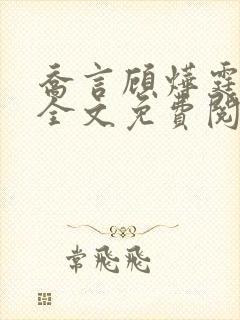 乔言顾烨霆
全文免费阅
常飛飛